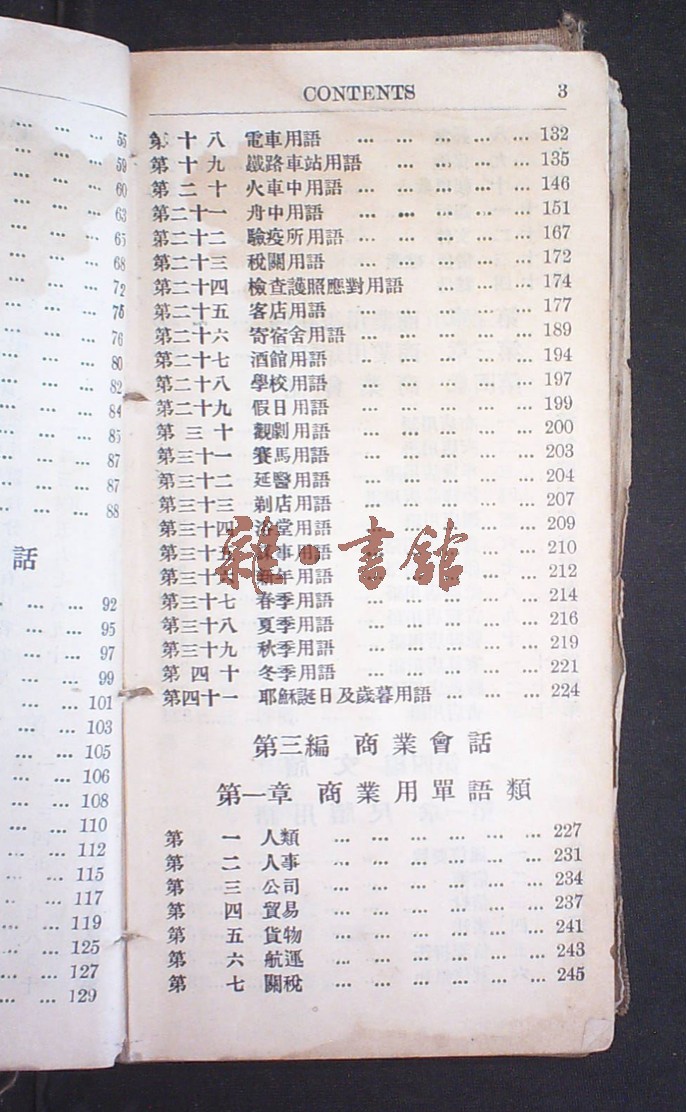 55
59
60
63
65
68
72
75
76
80
82
84
85
87
87
88
話
92
95
97
99
101
103
105
106
108
110
112
115
117
119
125
127
129
CONTENTS 3
第十八 電車用語 … … … … … 132
第十九 鐵路車站用語 … … … … 135
第二十 火車中用語 … … … … … 146
第二十一 舟中用語 … … … … … 151
第二十二 驗疫所用語 … … … … … 167
第二十三 稅關用語 … … … … … 172
第二十四 檢查護照應對用語 … … … 174
第二十五 客店用語 … … … … … 177
第二十六 寄宿舍用語 … … … … … 189
第二十七 酒館用語 … … … … … 194
第二十八 學校用語 … … … … … 197
第二十九 假日用語 … … … … … 199
第三十 觀劇用語 … … … … … 200
第三十一 賽馬用語 … … … … … 203
第三十二 延醫用語 … … … … … 204
第三十三 剃店用語 … … … … … 207
第三十四 浴堂用語 … … … … … 209
第三十五 事用語 … … … … … 210
第三十六 新年用語 … … … … … 212
第三十七 春季用語 … … … … … 214
第三十八 夏季用語 … … … … … 216
第三十九 秋季用語 … … … … … 219
第四十 冬季用語 … … … … … 221
第四十一 耶穌誕日及歲暮用語 … … … 224
雜·書館
第三編 商業會話
第一章 商業用單語類
第一 人類 … … … … … … 227
第二 人事 … … … … … … 231
第三 公司 … … … … … … 234
第四 貿易 … … … … … … 237
第五 貨物 … … … … … … 241
第六 航運 … … … … … … 243
第七 關稅 … … … … … … 245